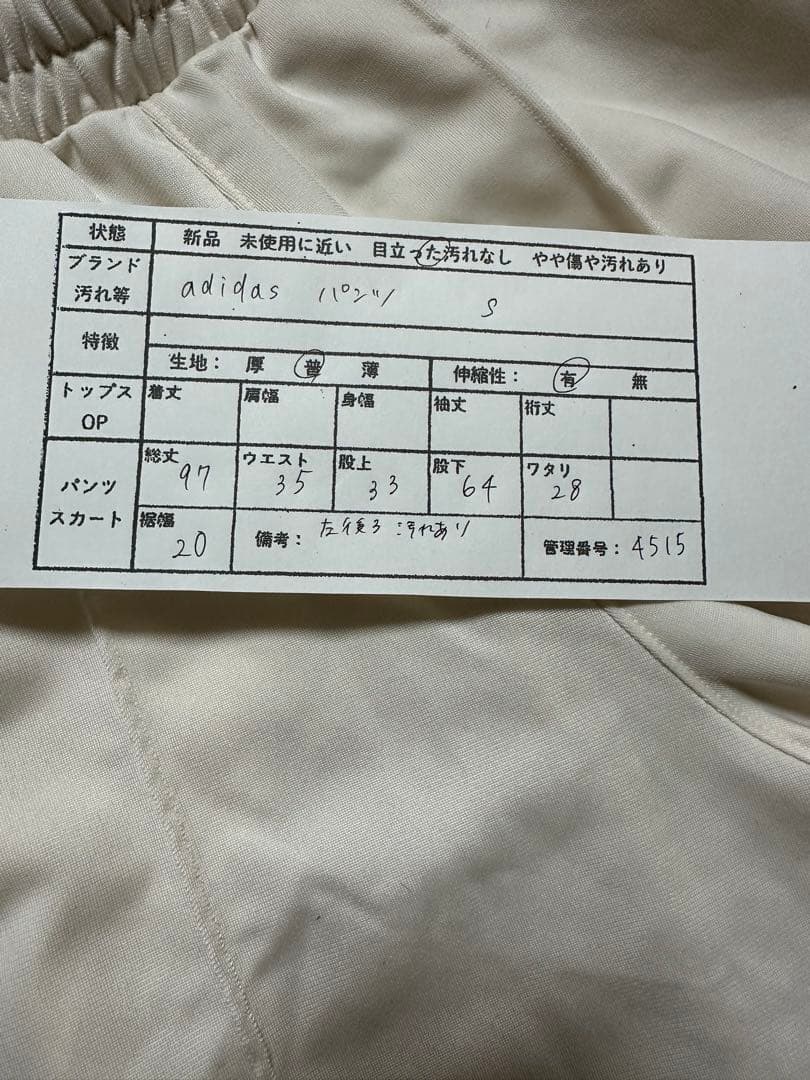 状態 新品 未使用に近い 目立った汚れなし やや傷や汚れあり
ブランド
汚れ等 adidas パンツ S
特徴
生地： 厚 普 薄 伸縮性： 有 無
トップス
OP
着丈 肩幅 身幅 袖丈 裄丈
パンツ
スカート
総丈 ウエスト 股上 股下 ワタリ
97 35 33 64 28
裾幅 備考： 左後ろ 汚れあり 管理番号： 4515
20